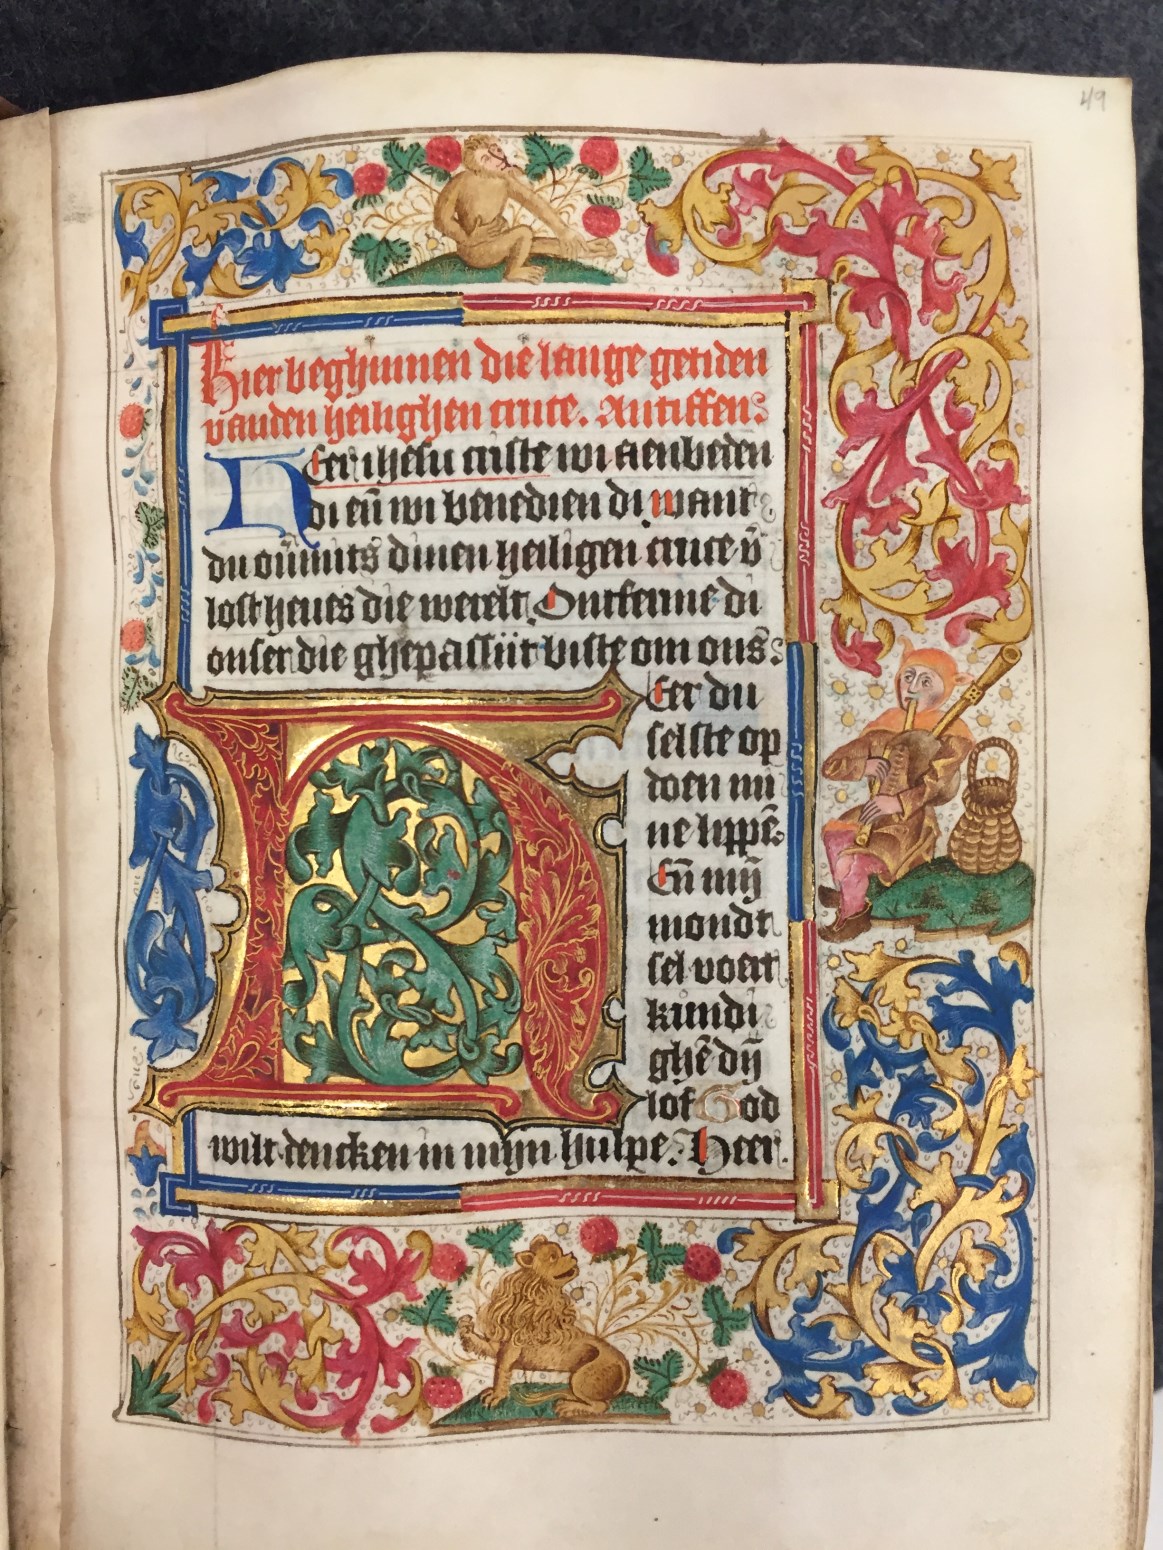 49
Hier beghinnen die lange getiden
vanden heilighen cruce. Antiffen
Heer ihesu criste wi aenbeden
di en̄ wi benedien di want
du oūmits dinen heiligen cruce v̄
lost heues die werelt. Ontferme di
onser die ghepassiit biste om ons.
Heer du
selste op
doen mi
ne lippē
En̄ mij̄
mondt
sel voert
kundi
ghē dij̄
lof God
wilt dencken in mijn hulpe. Heer